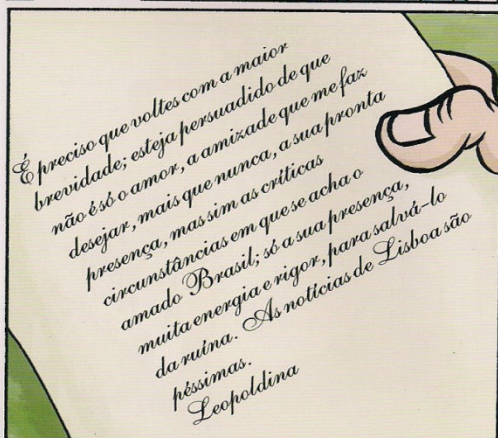 É preciso que voltes com a maior
brevidade; esteja persuadido de que
não é só o amor, a amizade que me faz
desejar, mais que nunca, a sua pronta
presença, mas sim as críticas
circunstâncias em que se acha o
amado Brasil; só a sua presença,
muita energia e rigor, para salvá-lo
da ruína. As notícias de Lisboa são
péssimas.
Leopoldina